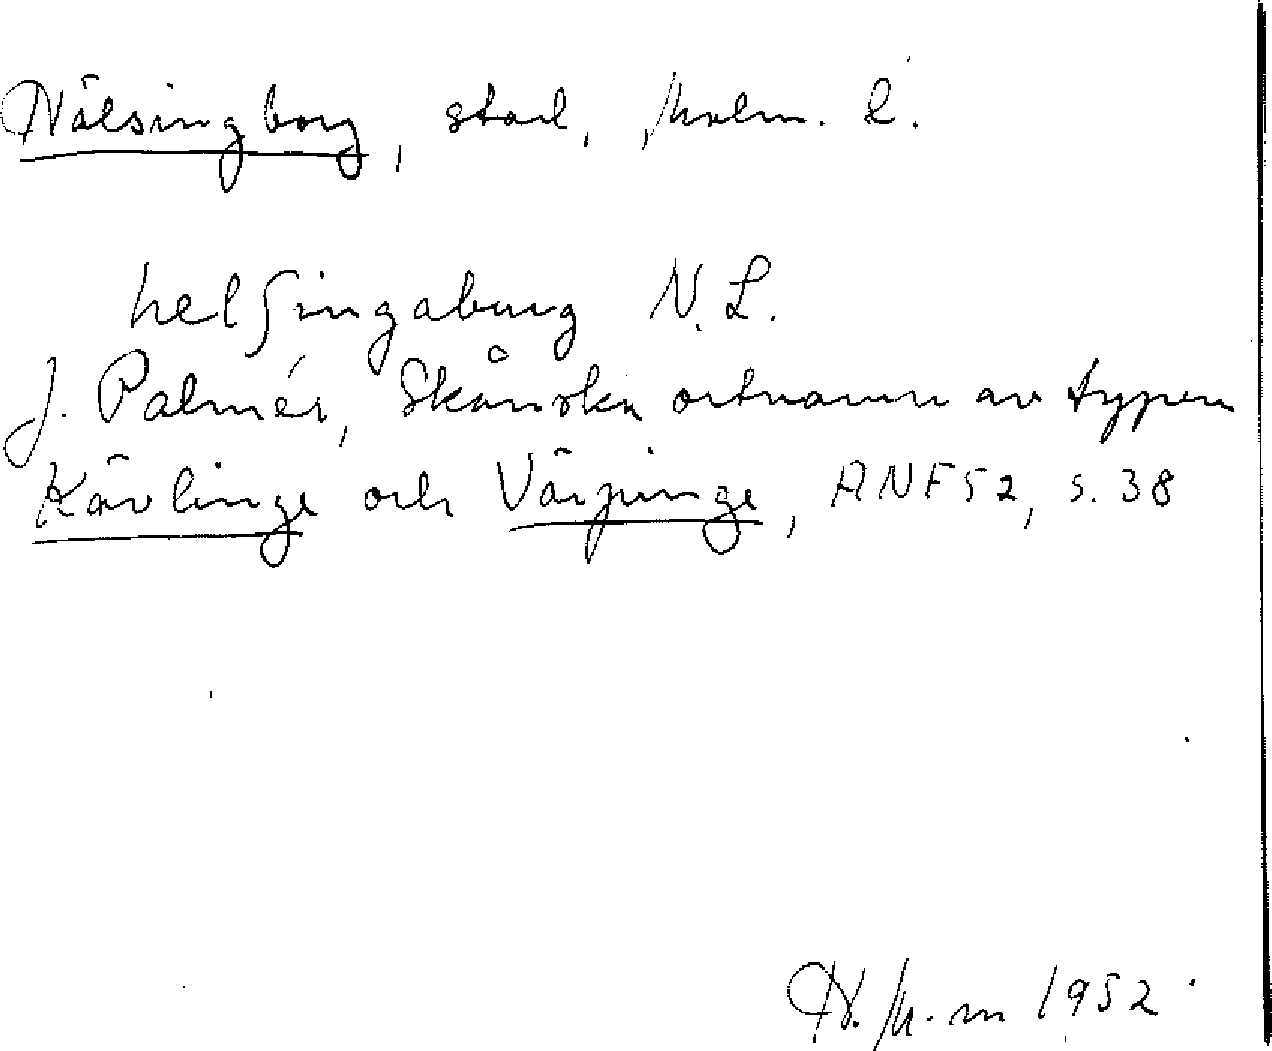 Hälsingborg, stad, Malm. l.
helſingaburg N. L.
J. Palmér, Skånska ortnamn av typen
Kävlinge och Värpinge, ANF 52, s. 38
H. M-m 1952